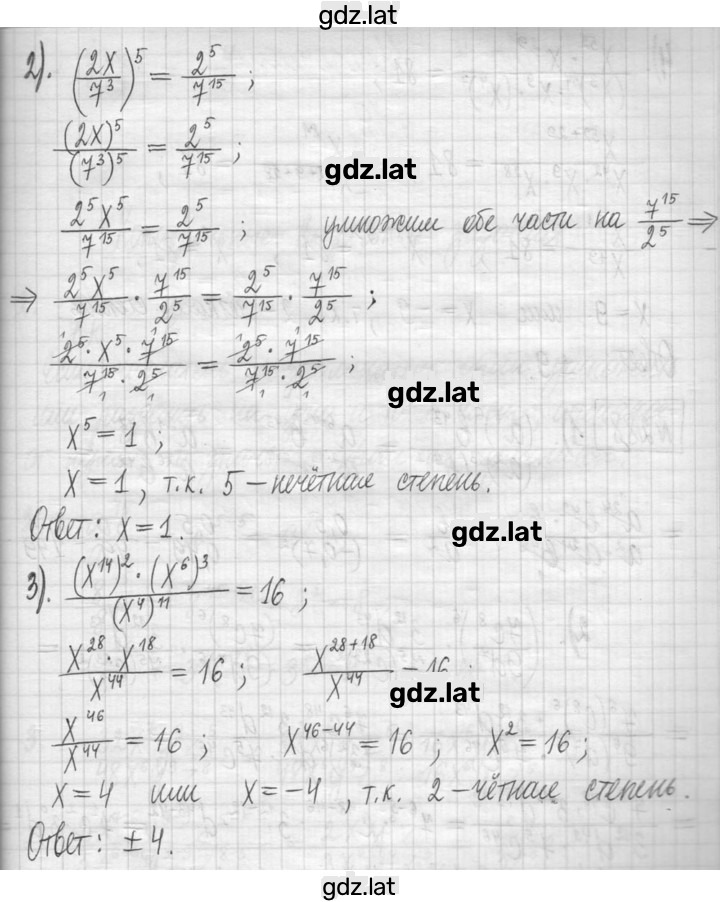 gdz.lat
2). (2x/7³)⁵ = 2⁵/7¹⁵ ;
(2x)⁵/(7³)⁵ = 2⁵/7¹⁵ ;
gdz.lat
2⁵x⁵/7¹⁵ = 2⁵/7¹⁵ ; умножим обе части на 7¹⁵/2⁵ ⇒
⇒ 2⁵x⁵/7¹⁵ · 7¹⁵/2⁵ = 2⁵/7¹⁵ · 7¹⁵/2⁵ ;
2⁵ · x⁵ · 7¹⁵/7¹⁵ · 2⁵ = 2⁵ · 7¹⁵/7¹⁵ · 2⁵ ;
gdz.lat
x⁵ = 1 ;
x = 1 , т.к. 5 – нечётная степень.
Ответ: x = 1.
gdz.lat
3). (x¹⁴)² · (x⁶)³/(x⁴)¹¹ = 16 ;
x²⁸ · x¹⁸/x⁴⁴ = 16 ; x²⁸⁺¹⁸/x⁴⁴ = 16 ;
gdz.lat
x⁴⁶/x⁴⁴ = 16 ; x⁴⁶⁻⁴⁴ = 16 ; x² = 16 ;
x = 4 или x = −4 , т.к. 2 – чётная степень.
Ответ: ± 4.
gdz.lat